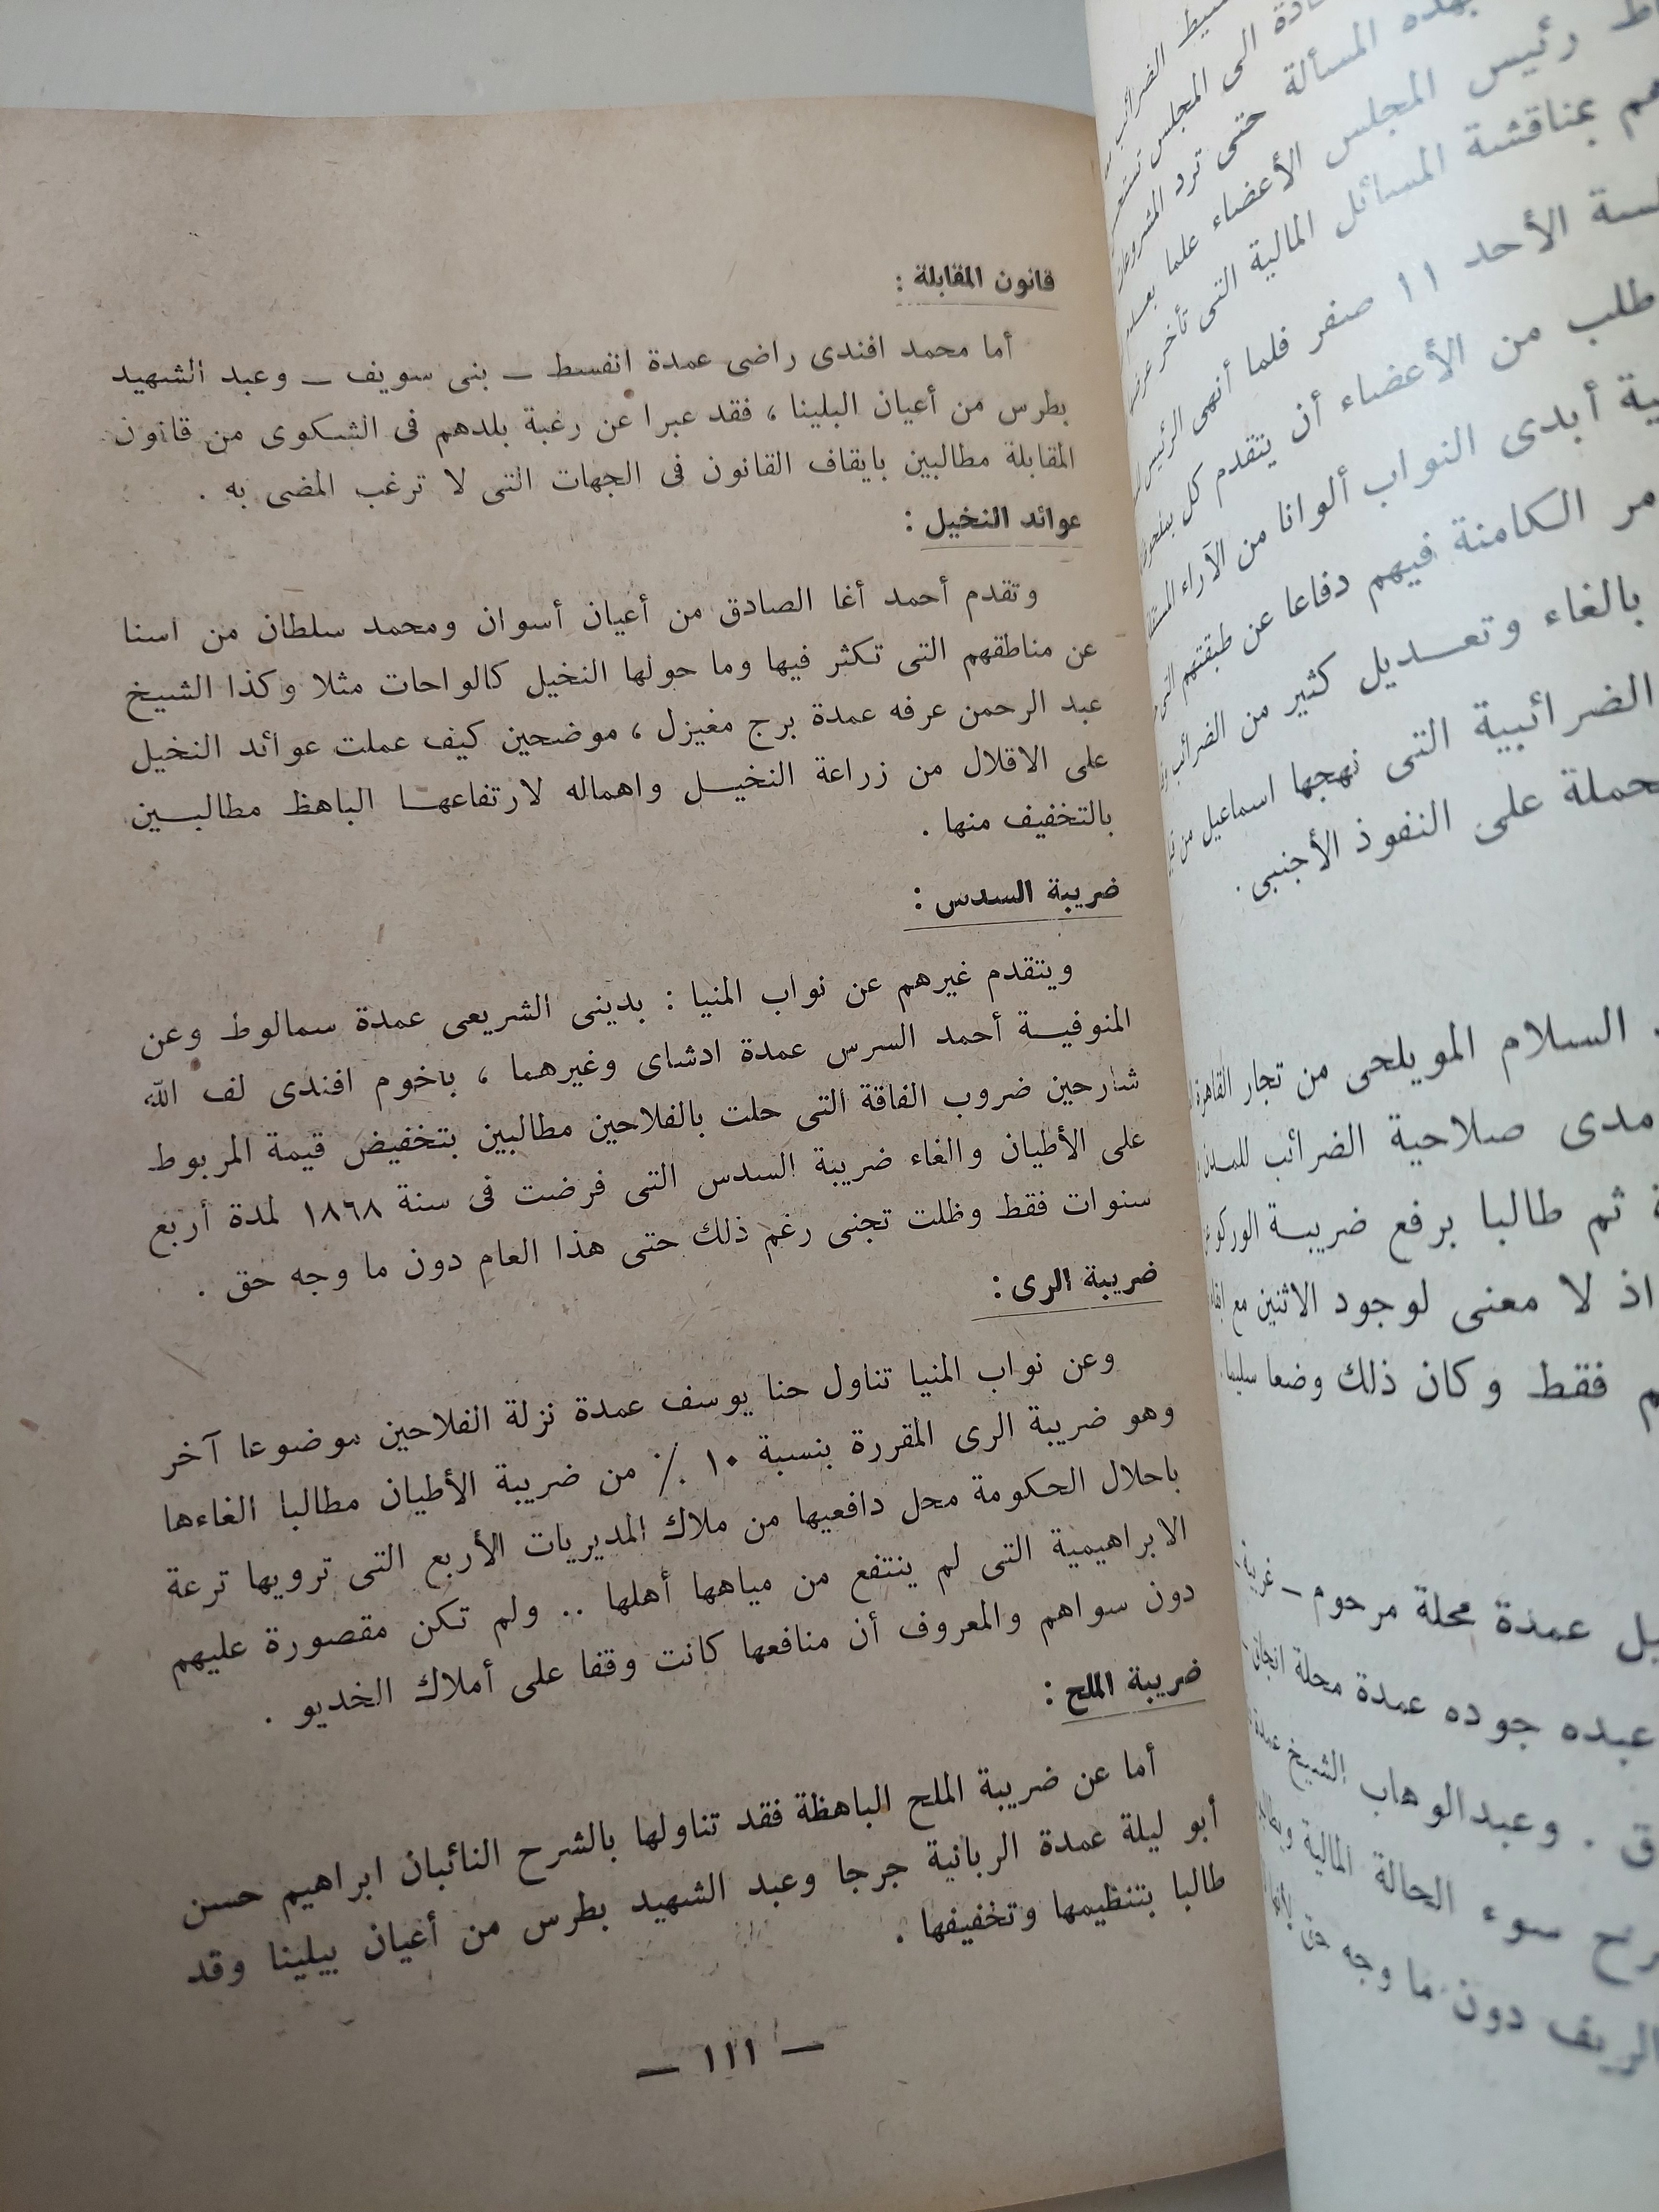 قانون المقابلة :
أما محمد افندى راضى عمدة انفسط ـ بنى سويف ـ وعبد الشهيد
بطرس من أعيان البلينا ، فقد عبرا عن رغبة بلدهم فى الشكوى من قانون
المقابلة مطالبين بايقاف القانون فى الجهات التى لا ترغب المضى به .
عوائد النخيل :
وتقدم أحمد أغا الصادق من أعيان أسوان ومحمد سلطان من اسنا
عن مناطقهم التى تكثر فيها وما حولها النخيل كالواحات مثلا وكذا الشيخ
عبد الرحمن عرفه عمدة برج مغيزل ، موضحين كيف عملت عوائد النخيل
على الاقلال من زراعة النخيل واهماله لارتفاعها الباهظ مطالبين
بالتخفيف منها .
ضريبة السدس :
ويتقدم غيرهم عن نواب المنيا : بدينى الشريعى عمدة سمالوط وعن
المنوفية أحمد السرس عمدة ادشاى وغيرهما ، باخوم افندى لف الله
شارحين ضروب الفاقة التى حلت بالفلاحين مطالبين بتخفيض قيمة المربوط
على الأطيان والغاء ضريبة السدس التى فرضت فى سنة ١٨٦٨ لمدة أربع
سنوات فقط وظلت تجنى رغم ذلك حتى هذا العام دون ما وجه حق .
ضريبة الرى :
وعن نواب المنيا تناول حنا يوسف عمدة نزلة الفلاحين موضوعا آخر
وهو ضريبة الرى المقررة بنسبة ١٠ ٪ من ضريبة الأطيان مطالبا الغاءها
باحلال الحكومة محل دافعيها من ملاك المديريات الأربع التى ترويها ترعة
الابراهيمية التى لم ينتفع من مياهها أهلها .. ولم تكن مقصورة عليهم
دون سواهم والمعروف أن منافعها كانت وقفا على أملاك الخديو .
ضريبة الملح :
أما عن ضريبة الملح الباهظة فقد تناولها بالشرح النائبان ابراهيم حسن
أبو ليلة عمدة الربانية جرجا وعبد الشهيد بطرس من أعيان ببلينا وقد
طالبا بتنظيمها وتخفيفها .
ـ ١١١ ـ
الضرائب
الى المجلس
بهذه المسألة حتى ترد المشروعات
رئيس المجلس الأعضاء علما
بمناقشة المسائل المالية التى تأخر
الأحد ١١ صفر فلما أنهى الرئيس
طلب من الأعضاء أن يتقدم كل
أبدى النواب ألوانا من الآراء
الكامنة فيهم دفاعا عن طبقتهم
بالغاء وتعديل كثير من الضرائب
الضرائبية التى نهجها اسماعيل من
على النفوذ الأجنبى .
السلام المويلحى من تجار القاهرة
مدى صلاحية الضرائب للمدن
ثم طالبا برفع ضريبة الوركو
اذ لا معنى لوجود الاثنين مع
فقط وكان ذلك وضعا سليما .
عمدة محلة مرحوم ـ غربية
عبده جوده عمدة محلة
. وعبدالوهاب الشيخ عمدة
سوء الحالة المالية
الريف دون ما وجه حق